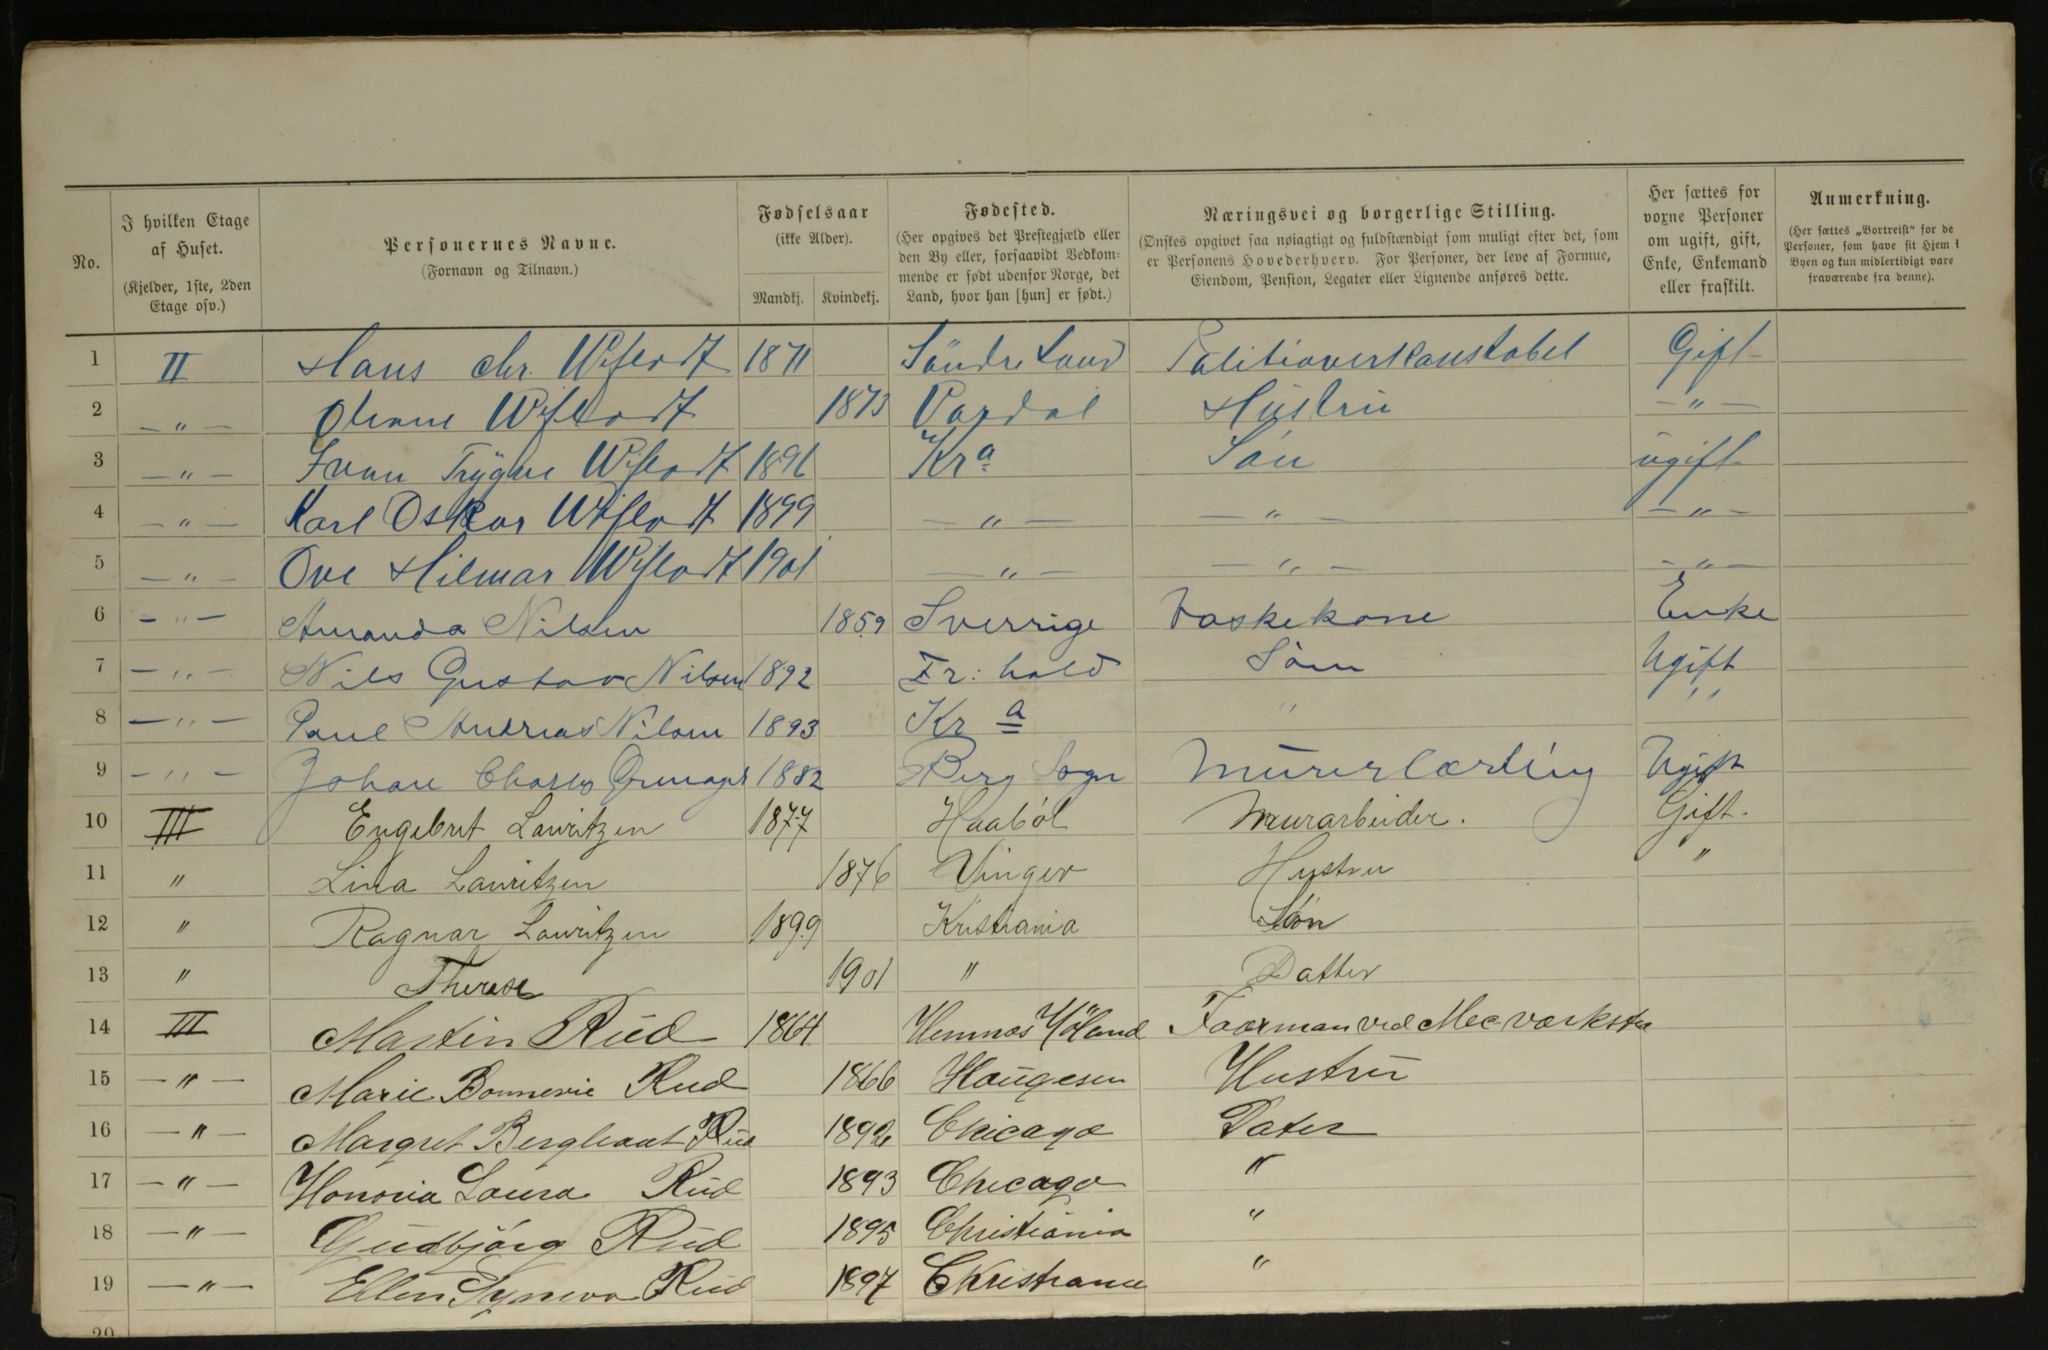 No. | I hvilken Etage af Huset. (Kjelder, 1ste, 2den Etage osv.) | Personernes Navne. (Fornavn og Tilnavn.) | Fødselsaar (ikke Alder). Mandkj. Kvindekj. | Fødested. (Her opgives det Prestegjæld eller den By eller, forsaavidt Vedkommende er født udenfor Norge, det Land, hvor han [hun] er født.) | Næringsvei og borgerlige Stilling. (Ønskes opgivet saa nøiagtigt og fuldstændigt som muligt efter det, som er Personens Hovederhverv. For Personer, der leve af Formue, Eiendom, Pension, Legater eller Lignende anføres dette. | Her sættes for voxne Personer om ugift, gift, Enke, Enkemand eller fraskilt. | Anmerkning. (Her sættes „Bortreist“ for de Personer, som have sit Hjem i Byen og kun midlertidigt vare fraværende fra denne).
1 II Hans Chr. Wiflodt 1871 Söndre Land Politioverkonstabel Gift
2 — " — Oliane Wiflodt 1873 Vardal Hustru — " —
3 — " — Ivan Trygve Wiflodt 1896 Kra Sön ugift
4 — " — Karl Oskar Wiflodt 1899 — " — — " — — " —
5 — " — Ove Hilmar Wiflodt 1901 — " — — " — — " —
6 — " — Amanda Nilsen 1859 Sverrige Vaskekone Enke
7 — " — Nils Gustav Nilsen 1892 Fr: hald Sön Ugift
8 — " — Paul Andreas Nilsen 1893 Kra " "
9 — " — Johan Charles 1882 Berg Sogn Murerlærling Ugift
10 III Engebret Lauritzen 1877 Haaböl Murarbeider. Gift.
11 " Lina Lauritzen 1876 Vinger Hustru "
12 " Ragnar Lauritzen 1899 Kristiania Søn
13 " Therese 1901 " Datter
14 III Martin Rud 1864 Hemnæs Höland Foorman ved Mec værksted
15 — " — Marie Bonnevie Rud 1866 Haugesen Hustru
16 — " — Margret Bergljaat Rud 1892 Chicago Dater
17 — " — Honoria Laura Rud 1893 Chicago "
18 — " — Gudbjörg Rud 1895 Christiania "
19 — " — Ellen Synnova Rud 1897 Christiania "
20